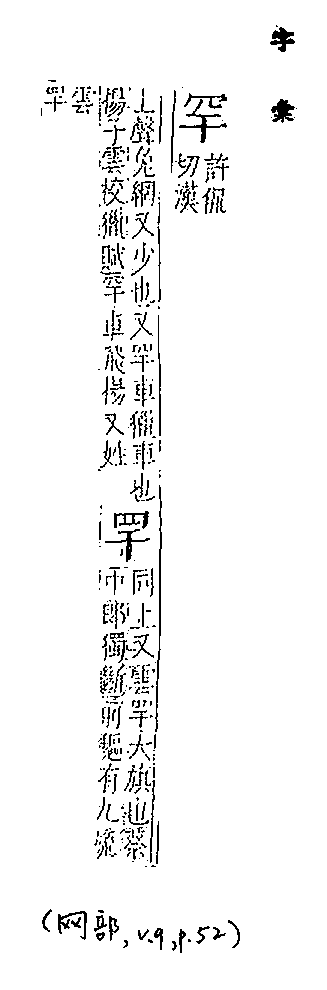 字彙
罕 許侃切漢
上聲免網又少也又罕車獵車也
揚子雲校獵賦罕車飛揚又姓
𦉼 同上又雲罕大旗也蔡
中郎獨斷前驅有九斿
雲罕
(网部, v.9, p.52)